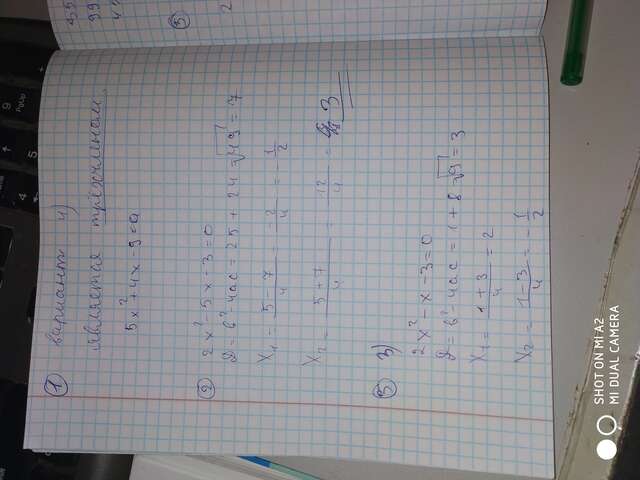 ① вариант 4)
является трёхчленом.
5x²+4x-9=0
② 2x²-5x-3=0
D=b²-4ac=25+24 √49=7
X₁=(5-7)/4=-2/4=-1/2
X₂=(5+7)/4=12/4=3
③ 3)
2x²-x-3=0
D=b²-4ac=1+8 √9=3
X₁=(1+3)/4=2
X₂=(1-3)/4=-1/2
45
99
⑤
2
4
5
9
PgUp
SHOT ON MI A2
MI DUAL CAMERA